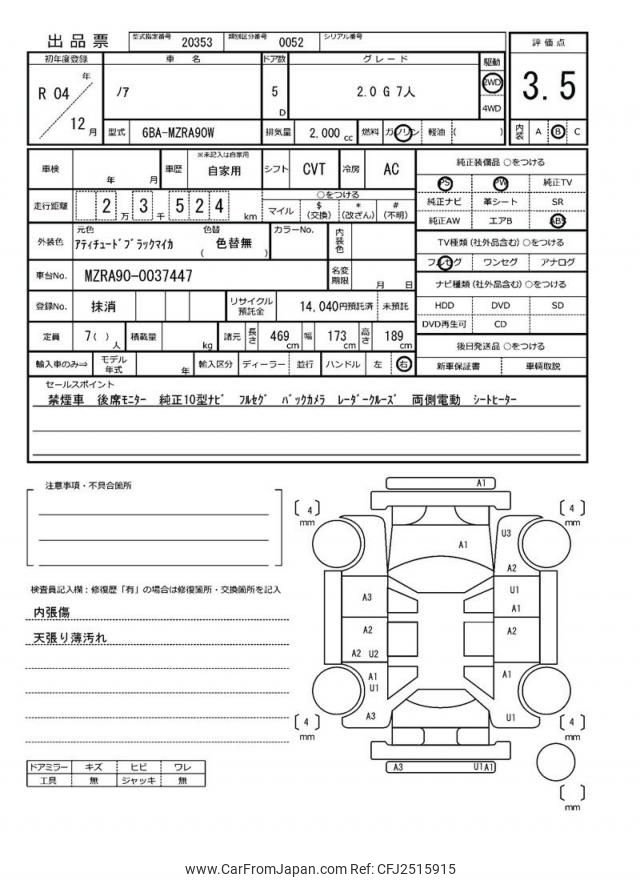 出品票 型式指定番号 20353 類別区分番号 0052 シリアル番号
初年度登録 車名 ドア数 グレード 駆動 評価点
R 04 年 12 月 ノア 5 D 2.0 G 7人 2WD 4WD 3.5
型式 6BA-MZRA90W 排気量 2,000 cc 燃料 ガソリン 軽油 ( ) 内装 A B C
車検 年 月 車歴 ※未記入は自家用 自家用 シフト CVT 冷房 AC
走行距離 2 万 3 千 5 2 4 km ○をつける マイル $ (交換) * (改ざん) # (不明)
外装色 元色 アティチュードブラックマイカ 色替 ( 色替無 ) カラーNo. 内装色
車台No. MZRA90-0037447 名変期限 月 日
登録No. 抹消 リサイクル預託金 14,040円預託済 未預託
定員 7( ) 人 積載量 kg 諸元 長さ 469 cm 幅 173 cm 高さ 189 cm
輸入車のみ⇒ モデル年式 年 輸入区分 ディーラー 並行 ハンドル 左 右
純正装備品 ○をつける
PS PW 純正TV
純正ナビ 革シート SR
純正AW エアB ABS
TV種類 (社外品含む) ○をつける
フルセグ ワンセグ アナログ
ナビ種類 (社外品含む) ○をつける
HDD DVD SD
DVD再生可 CD
後日発送品 ○をつける
新車保証書 車輌取説
セールスポイント
禁煙車 後席モニター 純正10型ナビ フルセグ バックカメラ レーダークルーズ 両側電動 シートヒーター
注意事項・不具合箇所
検査員記入欄：修復歴「有」の場合は修復箇所・交換箇所を記入
内張傷
天張り薄汚れ
ドアミラー キズ ヒビ ワレ
工具 無 ジャッキ 無
A1
[ 4 ] mm [ 4 ] mm
U3
A1
A2
A3 U1
A1
A2 A2
A2 U2
A1 A1
U1
A3 U1
[ 4 ] mm [ 4 ] mm
A3 U1A1
[ ] mm
www.CarFromJapan.com Ref: CFJ2515915